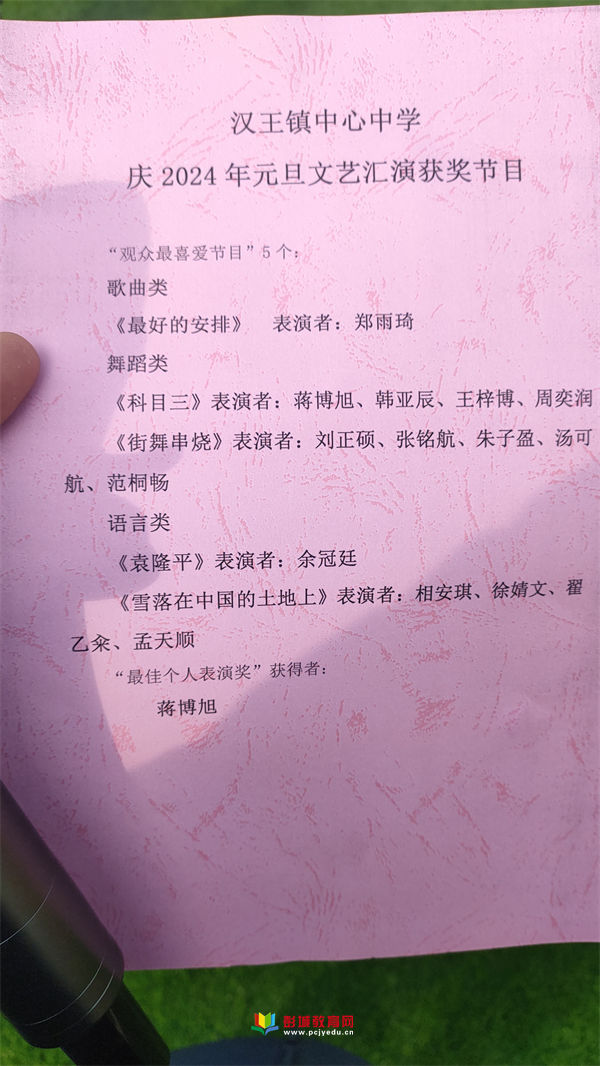 汉王镇中心中学
庆 2024 年元旦文艺汇演获奖节目
“观众最喜爱节目”5 个：
歌曲类
《最好的安排》 表演者：郑雨琦
舞蹈类
《科目三》表演者：蒋博旭、韩亚辰、王梓博、周奕润
《街舞串烧》表演者：刘正硕、张铭航、朱子盈、汤可
航、范桐畅
语言类
《袁隆平》表演者：余冠廷
《雪落在中国的土地上》表演者：相安琪、徐婧文、翟
乙籴、孟天顺
“最佳个人表演奖”获得者：
蒋博旭
彭城教育网
www.pcjyedu.cn